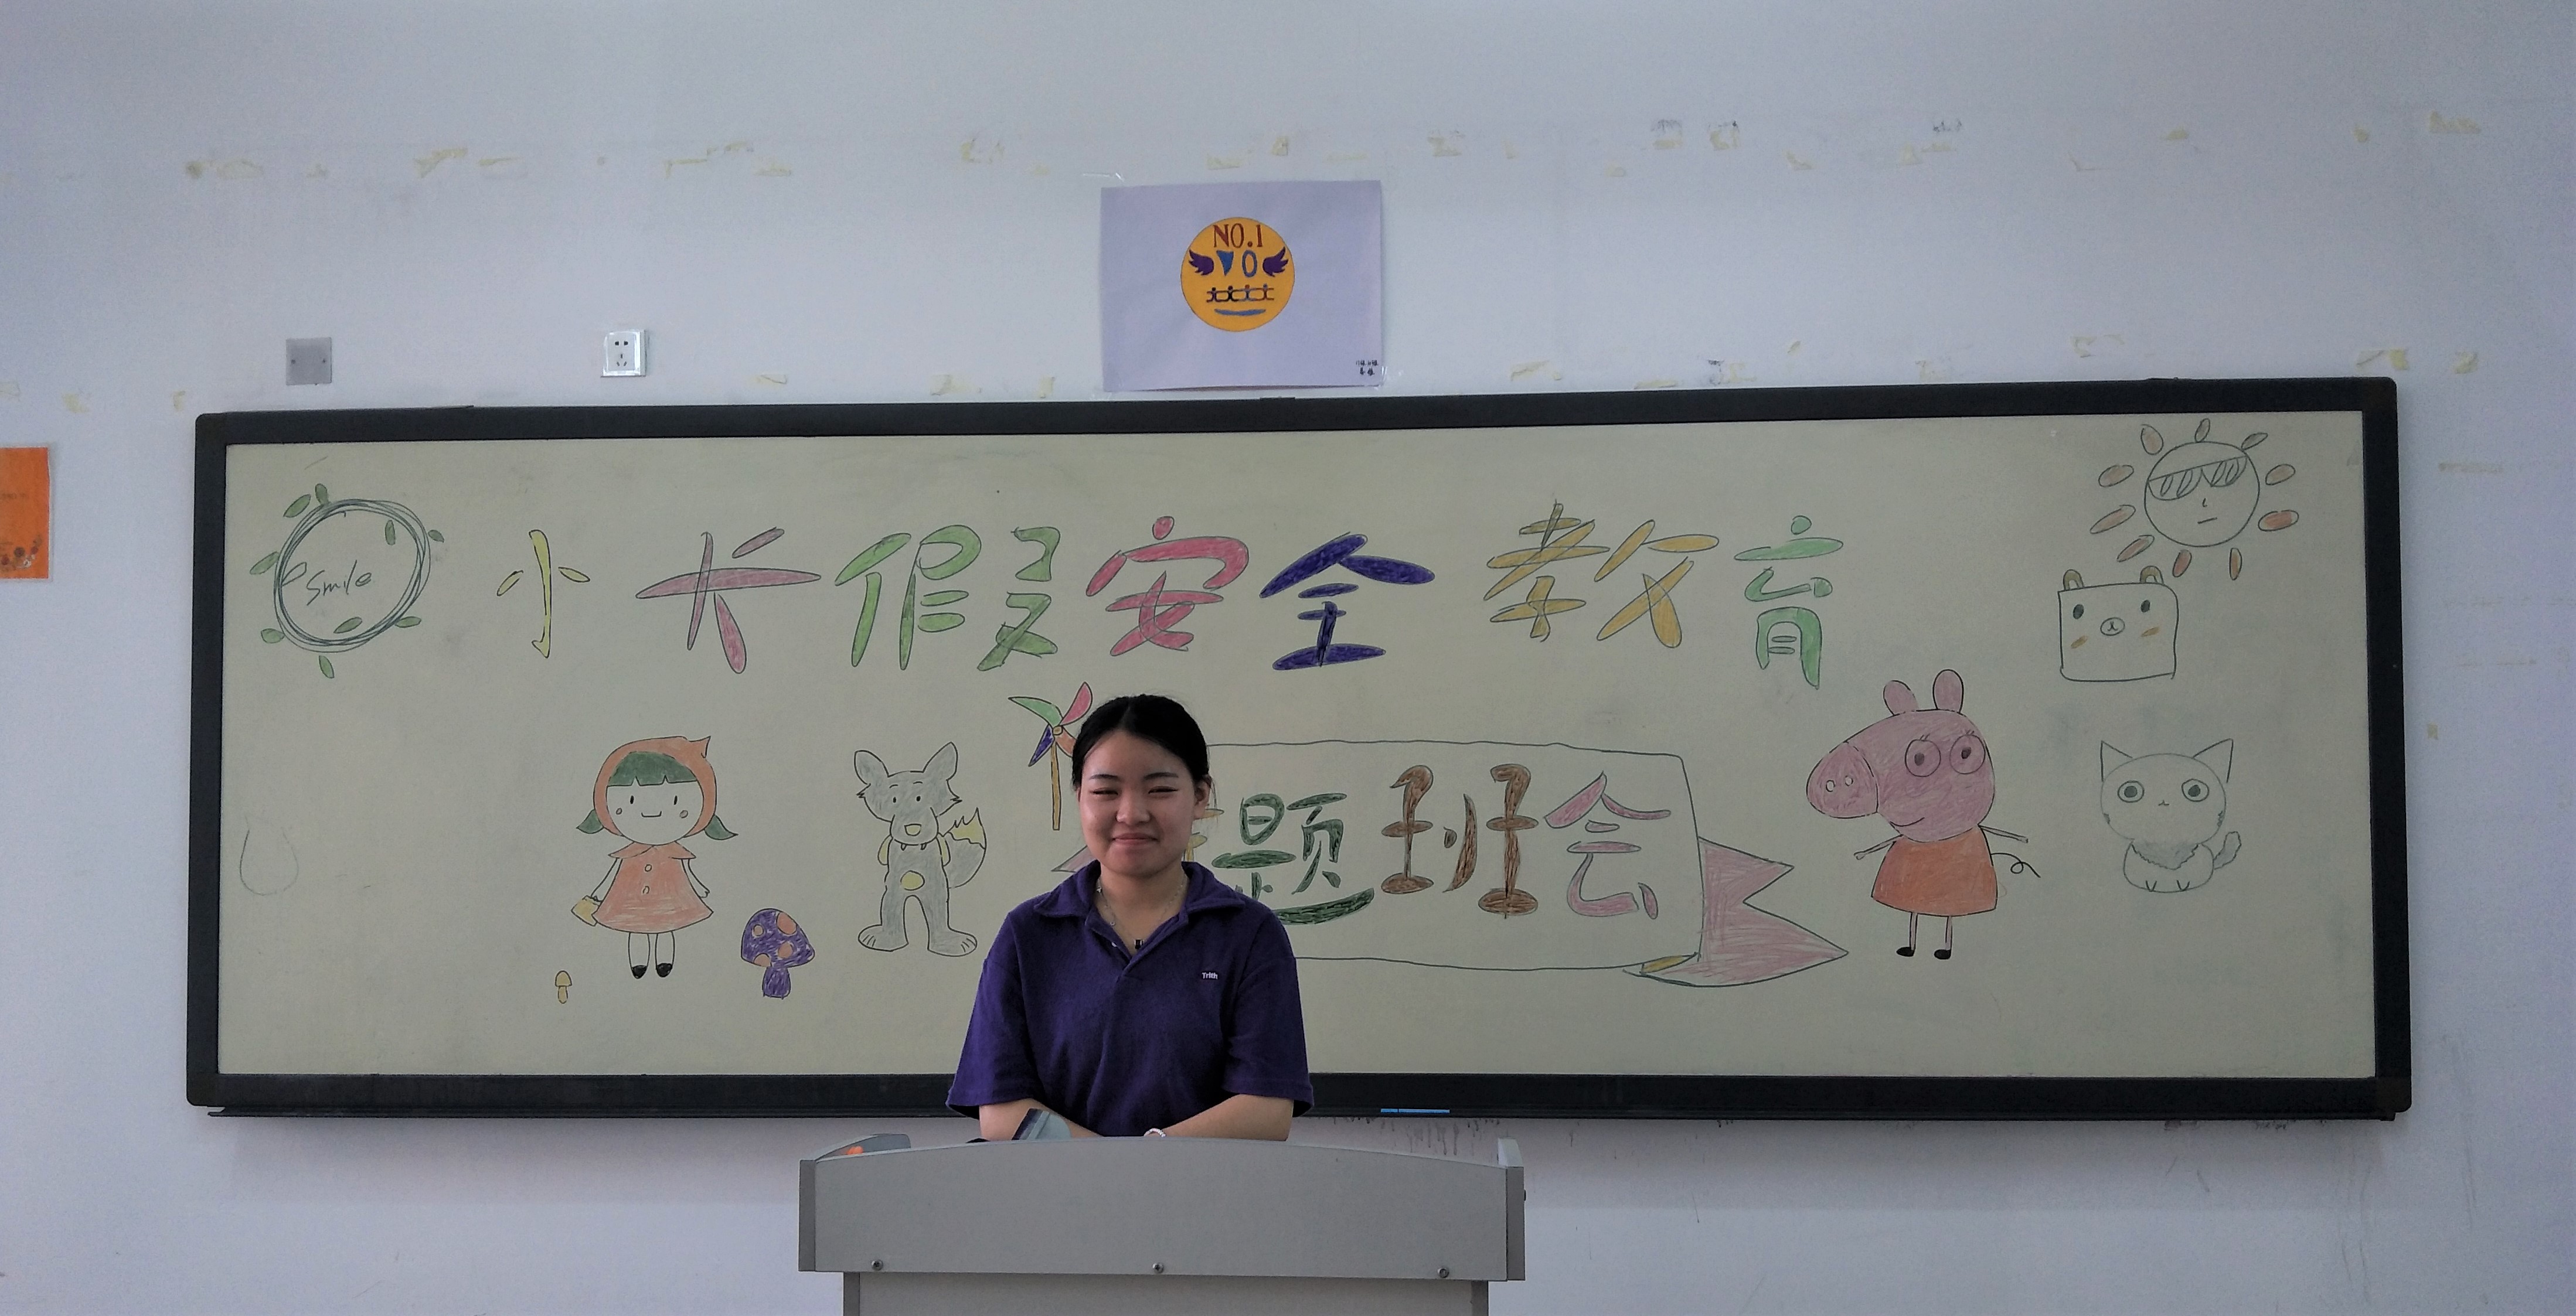 NO.1
小长假安全教育
Smile
题班会
Trith